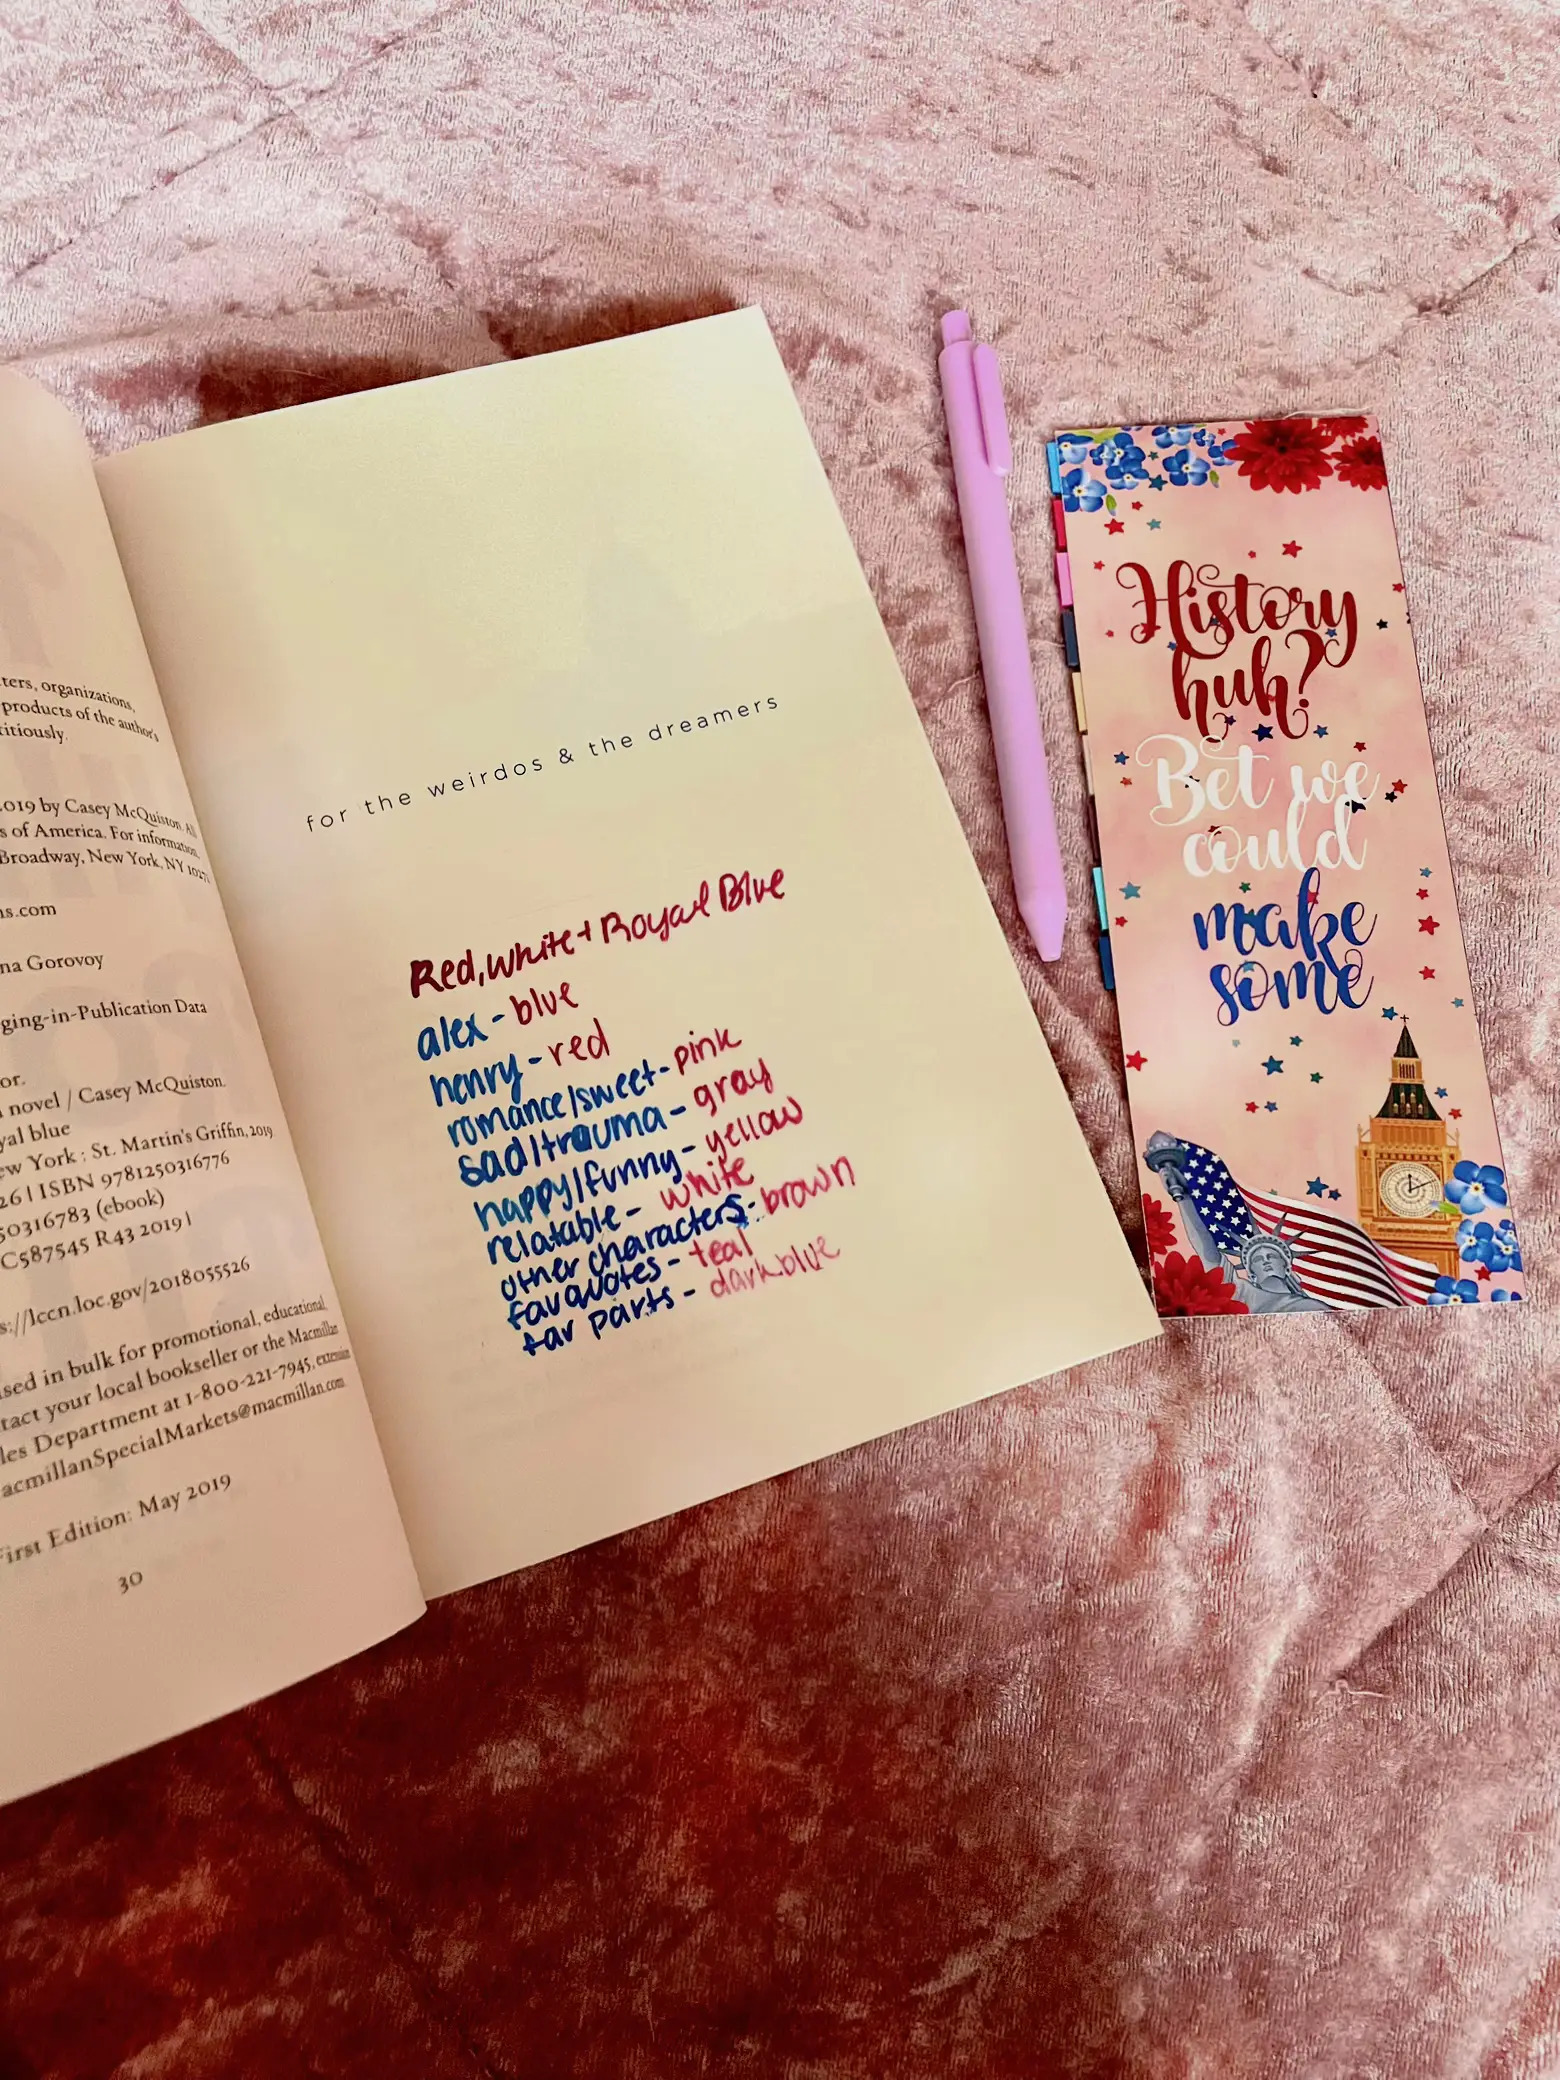 ters, organizations,
products of the author's
titiously.
2019 by Casey McQuiston. All
s of America. For information,
Broadway, New York, NY 10271
ns.com
na Gorovoy
ging-in-Publication Data
or.
novel / Casey McQuiston.
yal blue
ew York : St. Martin's Griffin, 2019
26 | ISBN 9781250316776
50316783 (ebook)
C587545 R43 2019 |
s://lccn.loc.gov/2018055526
ased in bulk for promotional, educational,
tact your local bookseller or the Macmillan
les Department at 1-800-221-7945, extension
acmillanSpecialMarkets@macmillan.com
First Edition: May 2019
30
for the weirdos & the dreamers
Red, white + Royal Blue
alex - blue
henry - red
romance/sweet - pink
sad/trauma - gray
happy/funny - yellow
relatable - white
other characters - brown
fav quotes - teal
fav parts - dark blue
History
huh?
Bet we
could
make
some